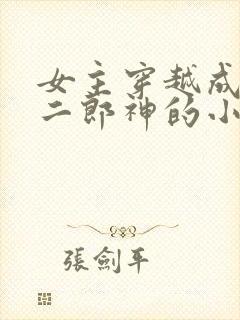 女主穿越成
二郎神的小
張劍平